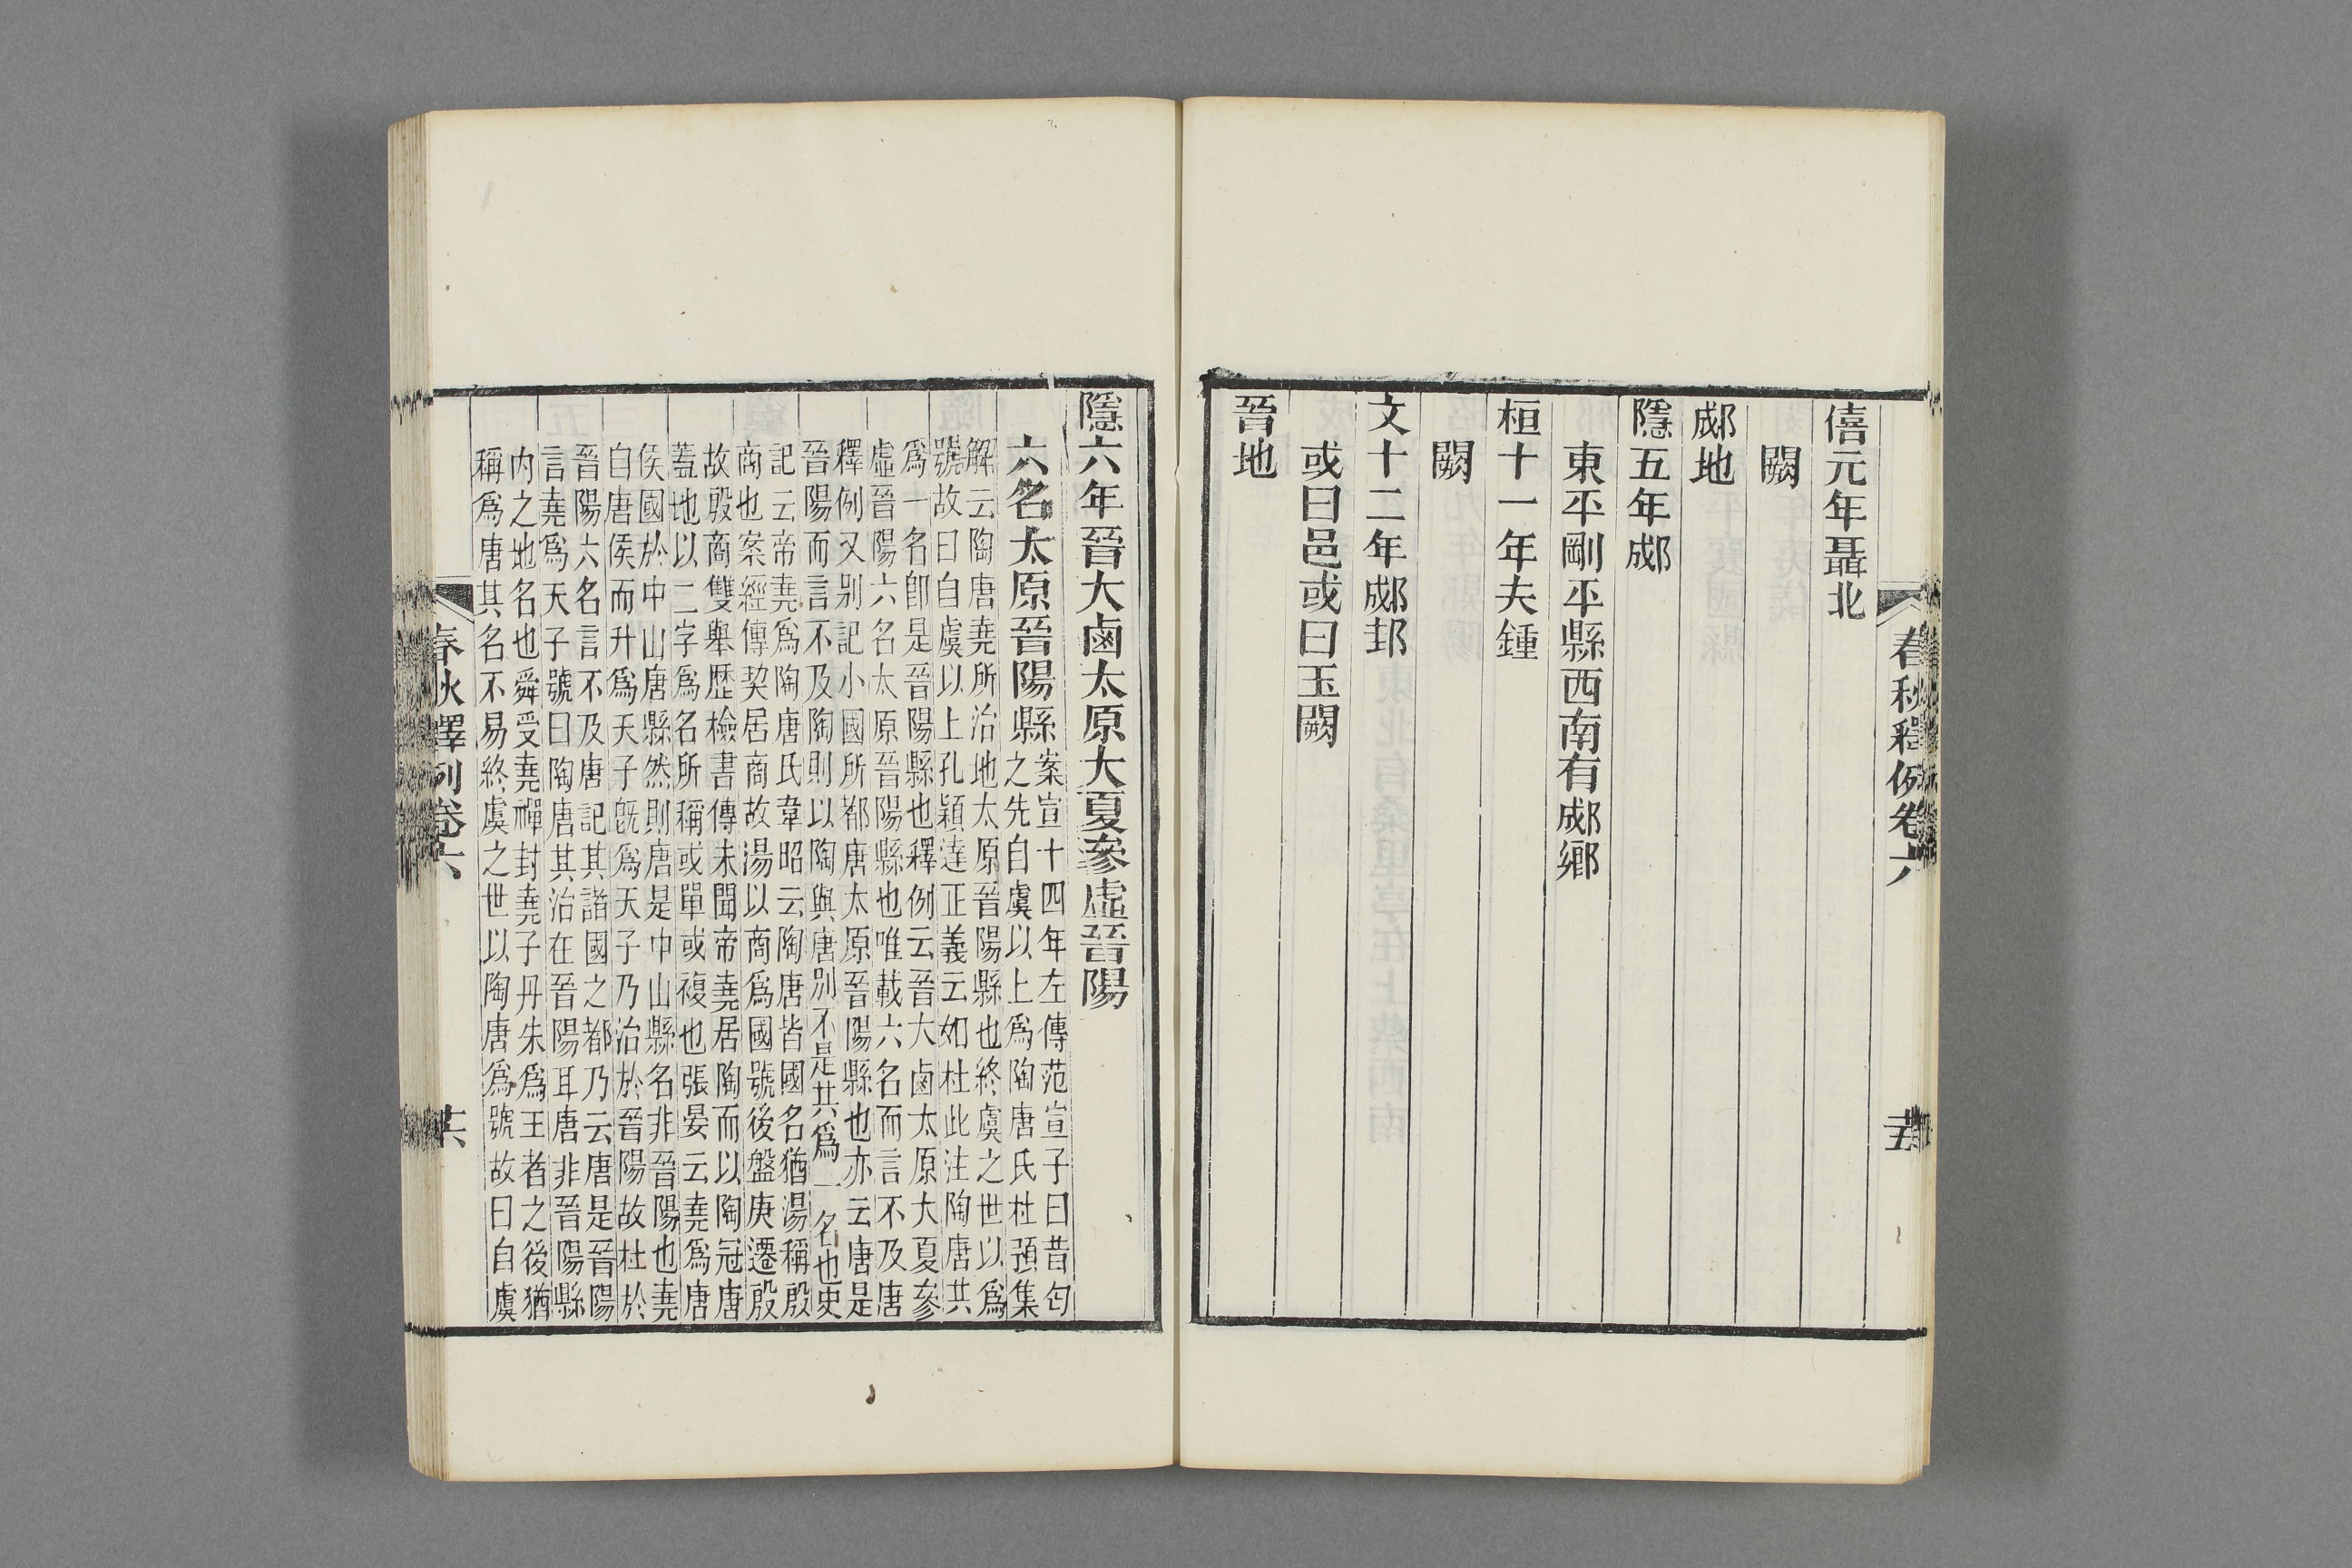 春秋釋例卷六
僖元年聶北
闕
郕地
隱五年郕
東平剛平縣西南有郕鄉
桓十一年夫鍾
闕
文十二年郕邽
或曰邑或曰玉闕
晉地
隱六年晉大鹵太原大夏參虛晉陽
六名太原晉陽縣
案宣十四年左傳范宣子曰昔匄
之先自虞以上爲陶唐氏杜預集
解云陶唐堯所治地太原晉陽縣也終虞之世以爲
號故曰自虞以上孔穎達正義云如杜此注陶唐共
爲一名卽是晉陽縣也釋例云晉大鹵太原大夏參
虛晉陽六名太原晉陽縣也唯載六名而言不及唐
釋例又别記小國所都唐太原晉陽縣也亦云唐是
晉陽而言不及陶則以陶與唐别不是共爲一名也史
記云帝堯爲陶唐氏韋昭云陶唐皆國名猶湯稱殷
商也案經傳契居商故湯以商爲國號後盤庚遷殷
故殷商雙舉歷檢書傳未聞帝堯居陶而以陶冠唐
蓋地以二字爲名所稱或單或複也張晏云堯爲唐
侯國於中山唐縣然則唐是中山縣名非晉陽也堯
自唐侯而升爲天子旣爲天子乃治於晉陽故杜於
晉陽六名言不及唐記其諸國之都乃云唐是晉陽
言堯爲天子號曰陶唐其治在晉陽耳唐非晉陽縣
内之地名也舜受堯禪封堯子丹朱爲王者之後猶
稱爲唐其名不易終虞之世以陶唐爲號故曰自虞
春秋釋例卷六